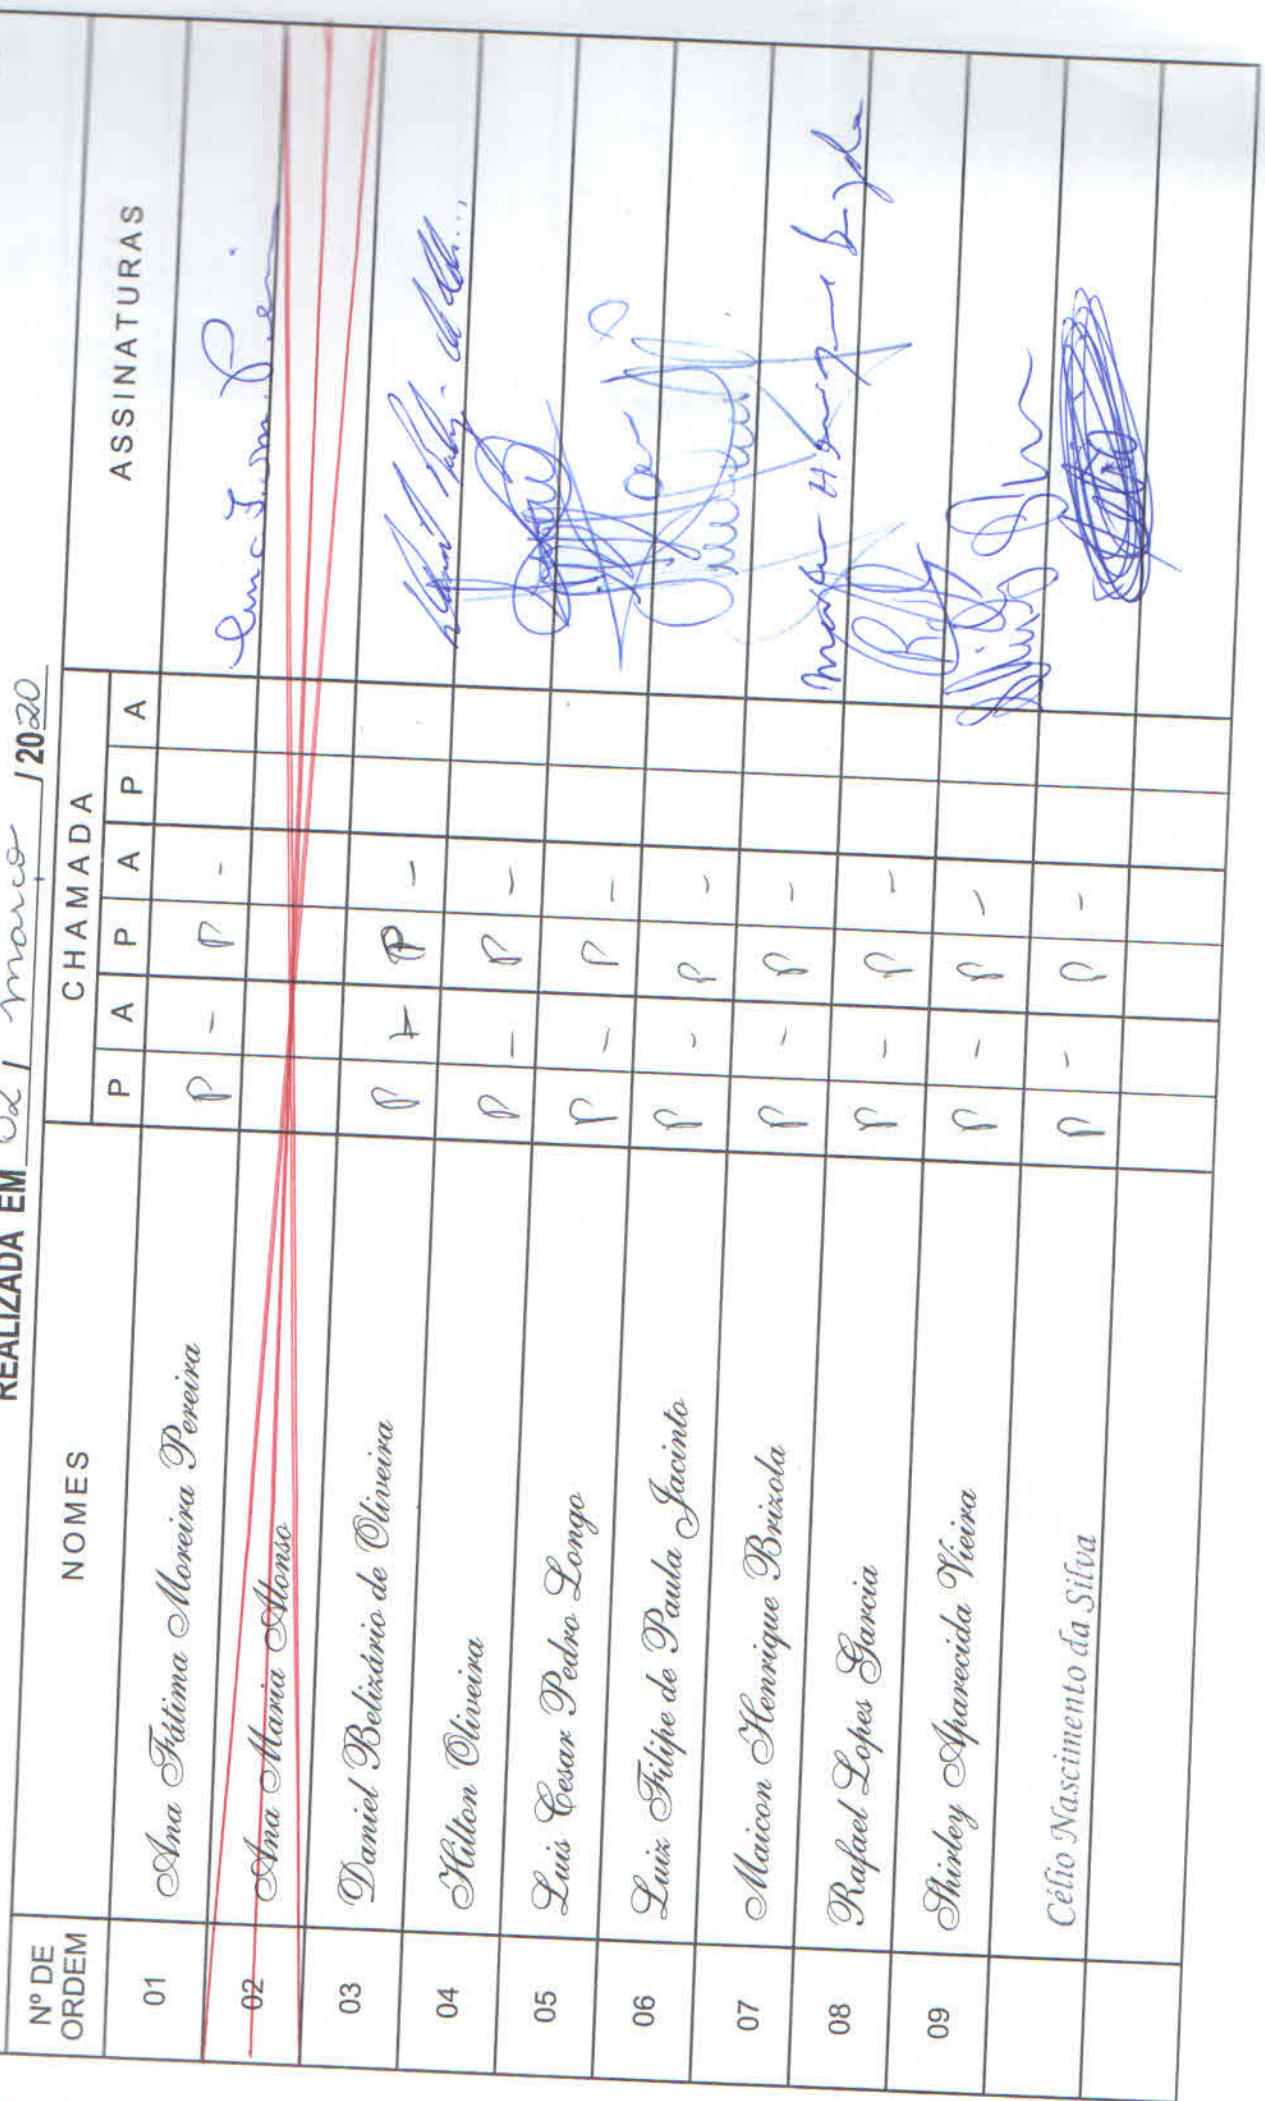 REALIZADA EM 02 / março / 2020
Nº DE ORDEM NOMES CHAMADA ASSINATURAS
P A P A P A
01 Ana Fátima Moreira Pereira P - P -
02 Ana Maria Alonso
03 Daniel Belizário de Oliveira P P -
04 Hilton Oliveira P - P -
05 Luis Cesar Pedro Longo P - P -
06 Luiz Filipe de Paula Jacinto P - P -
07 Maicon Henrique Brizola P - P -
08 Rafael Lopes Garcia P - P -
09 Shirley Aparecida Vieira P - P -
Célio Nascimento da Silva P - P -